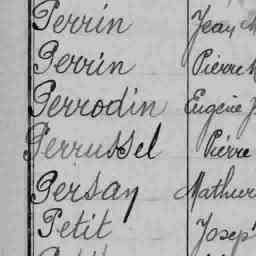 Perrin Jean
Perrin Pierre
Perrodin Eugène J
Perrussel Pierre
Persay Mathieu
Petit Josep